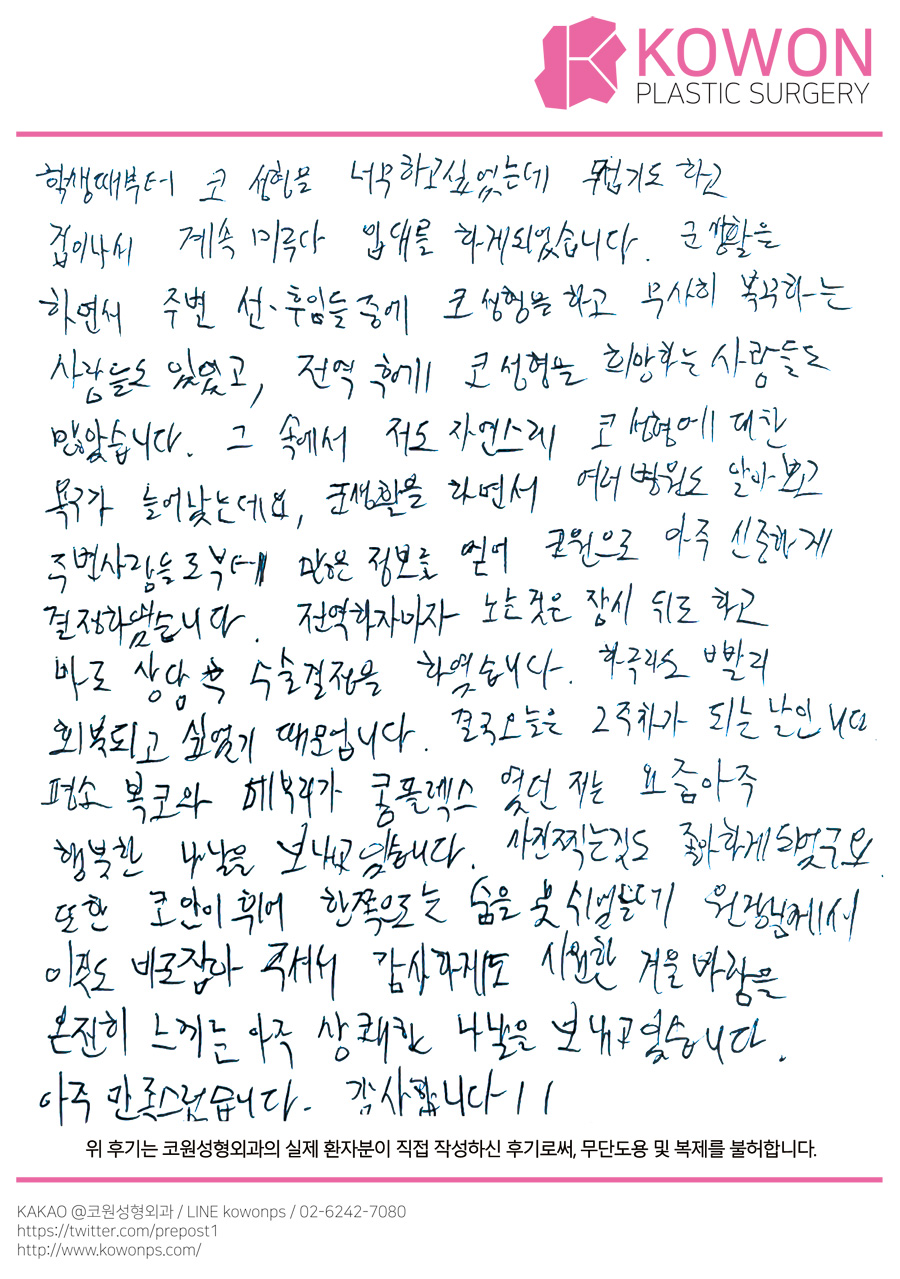 KOWON
PLASTIC SURGERY
학생때부터 코 성형을 너무하고싶었는데 무섭기도 하고
겁이나서 계속 미루다 입대를 하게되었습니다. 군생활을
하면서 주변 선·후임들 중에 코 성형을 하고 무사히 복귀하는
사람들도 있었고, 전역 후에 코 성형을 희망하는 사람들도
많았습니다. 그 속에서 저도 자연스레 코 성형에 대한
욕구가 늘어났는데요, 군생활을 하면서 여러 병원도 알아보고
주변사람들로부터 많은 정보를 얻어 코원으로 아주 신중하게
결정하였습니다. 전역하자마자 노는것은 잠시 뒤로 하고
바로 상담 후 수술결정을 하였습니다. 하루라도 빨리
회복되고 싶었기 때문입니다. 결국오늘은 2주차가 되는 날인니다.
평소 복코와 메부리가 콤플렉스 였던 저는 요즘아주
행복한 나날을 보내고 있습니다. 사진찍는것도 좋아하게되었구요.
또한 코안이 휘어 한쪽으로는 숨을 못 쉬었는데 원장님께서
이것도 바로잡아 주셔서 감사하게도 시원한 겨울 바람을
온전히 느끼는 아주 상쾌한 나날을 보내고 있습니다.
아주 만족스럽습니다. 감사합니다!!
위 후기는 코원성형외과의 실제 환자분이 직접 작성하신 후기로써, 무단도용 및 복제를 불허합니다.
KAKAO @코원성형외과 / LINE kowonps / 02-6242-7080
https://twitter.com/prepost1
http://www.kowonps.com/